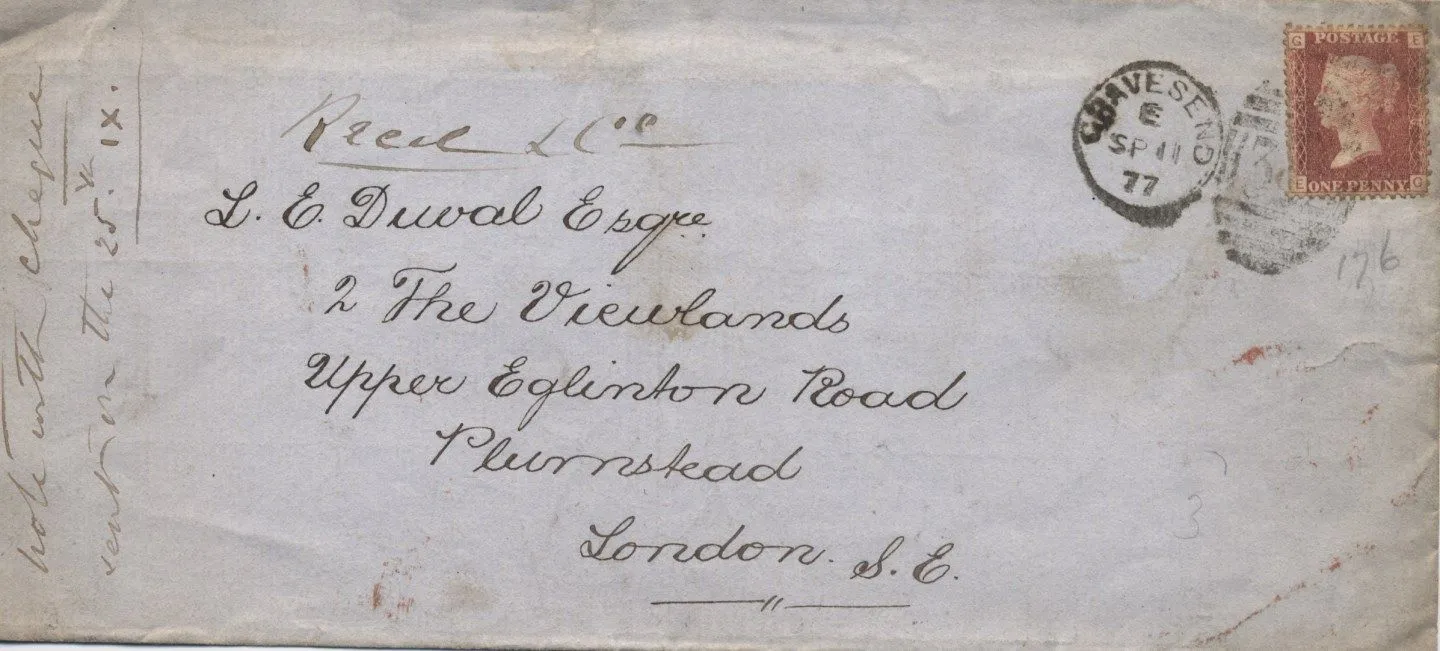 note with cheque
sent on the 25.th IX.
L. E. Duval Esqre.
2 The Viewlands
Upper Eglinton Road
Plumstead
London. S. E.
GRAVESEND
E
SP 11
77
G E
POSTAGE
E G
ONE PENNY
176
3